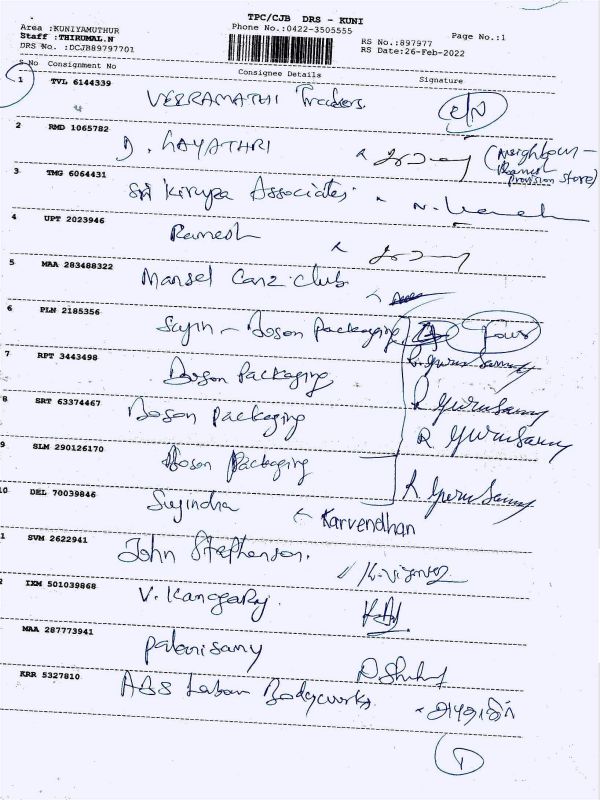 TPC/CJB DRS - KUNI
Area :KUNIYAMUTHUR Phone No.:0422-3505555 Page No.:1
Staff :THIRUMAL.N RS No.:897977
DRS No. :DCJB89797701 RS Date:26-Feb-2022
S No Consignment No Consignee Details Signature
1 TVL 6144339
VEERAMATHI Traders.
2 RMD 1065782
D. GAYATHRI (Neighbour -
Ramesh
provision store)
3 TMG 6064431
Sri Kirupa Associates.
4 UPT 2023946
Ramesh
5 MAA 283488322
Mansel Carz club
6 PLN 2185356
Sujin - Boson packaging Four
7 RPT 3443498 R. Gurusamy
Boson Packaging
8 SRT 63374467 R Gurusamy
Boson Packaging R Gurusamy
9 SLM 290126170
Boson Packaging
10 DEL 70039846 R Gurusamy
Sujindra Karvendhan
1 SVM 2622941
John Stephenson.
2 IXM 501039868
V. Kanagaraj.
MAA 287773941
Palanisamy
KRR 5327810
ABS Laban Bodyworks.
1